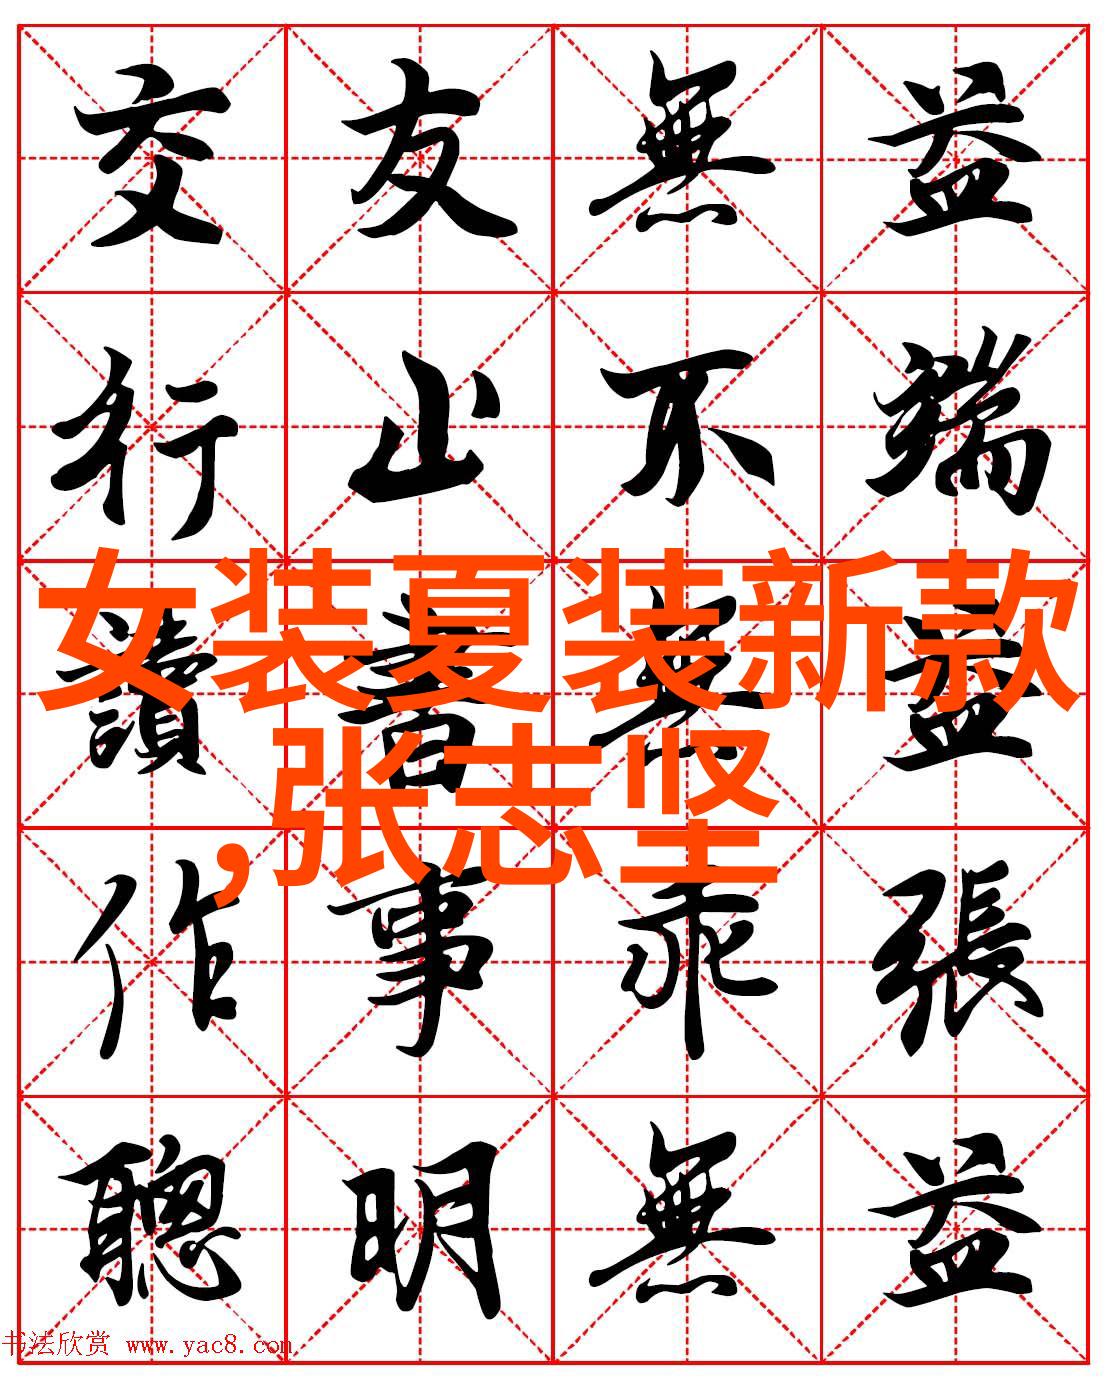 交友無益
行止不端
讀書無益
作事乖張
聰明無益
女装夏装新款
,张志坚
书法欣赏 www.yac8.com